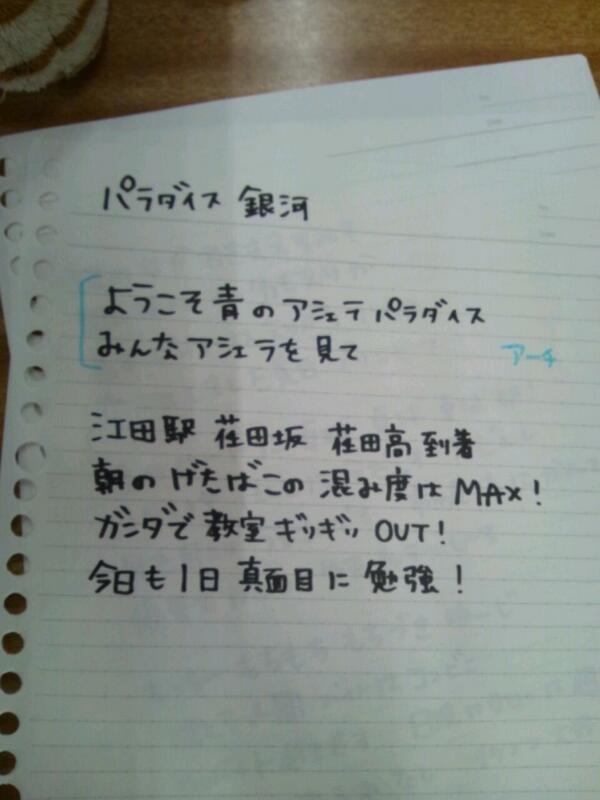 パラダイス 銀河
ようこそ青のアシェラパラダイス
みんなアシェラを見て
アーチ
江田駅 荏田坂 荏田高 到着
朝のげたばこの 混み度は MAX!
ガンダで 教室 ギリギリ OUT!
今日も1日 真面目に 勉強!